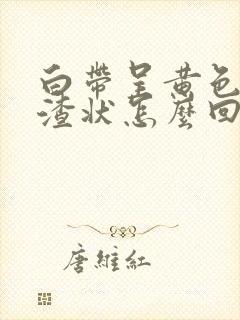 白帶呈黄色
渣状怎麼回
唐維紅